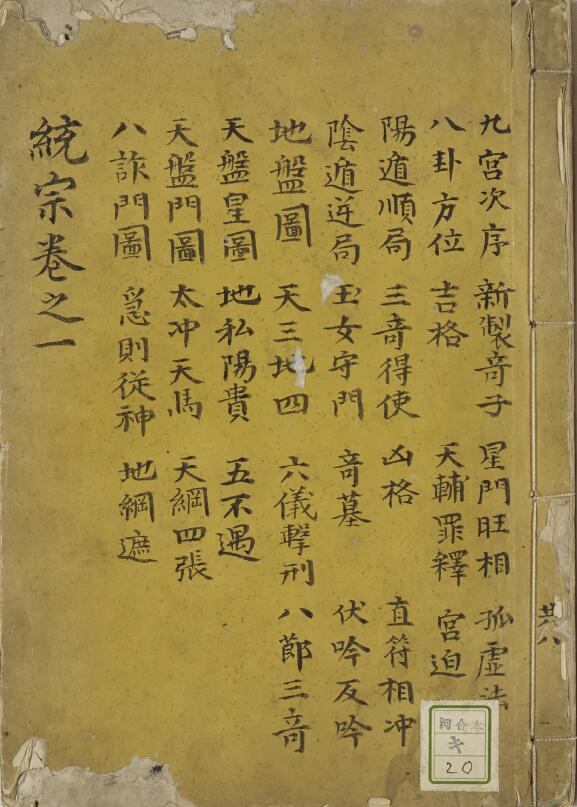 九宮次序 新製竒子 星門旺相 孤虛法
八卦方位 吉格 天輔罪釋 宮迫
陽遁順局 三竒得使 凶格 直符相冲
陰遁逆局 玉女守門 竒墓 伏吟反吟
地盤圖 天三地四 六儀擊刑 八節三竒
天盤星圖 地私陽貴 五不遇
天盤門圖 太冲天馬 天網四張
八詐門圖 急則從神 地網遮
統宗卷之一
共八
河合本
キ
20